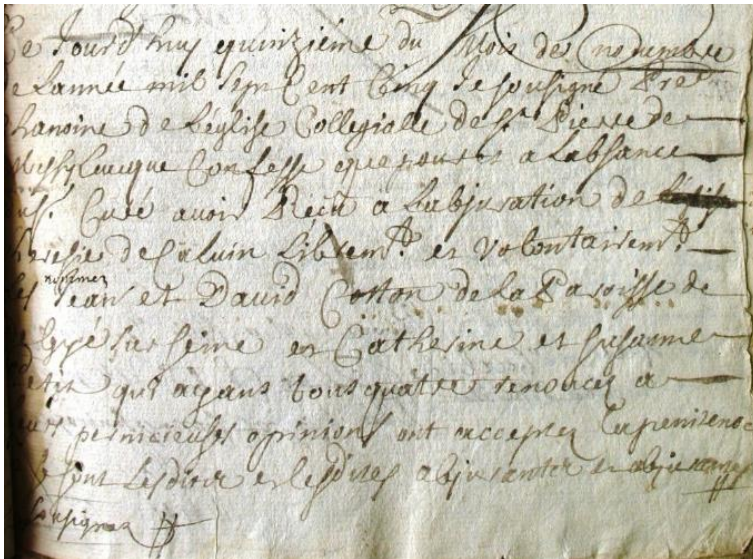 Ce Jourd huy quinzieme du Mois de novembre
de Lannée mil Sept Cent Cinq Je sousigné Pre
Chanoine de Léglise Collegialle de St. Pierre de
Confesse a Labsance
Curé avoir Recu a Labjuration de
heresie de Caluin Librem.t et volontairem.t
les nommez Jean et David Cotton de La Paroisse de
sur Seine et Catherine et Susanne
petit qui ayant tous quatre renoncez a
leurs pernicieuses opinions ont acceptez La penitence
sont Lesdits et lesdites abjurantes
sousignez